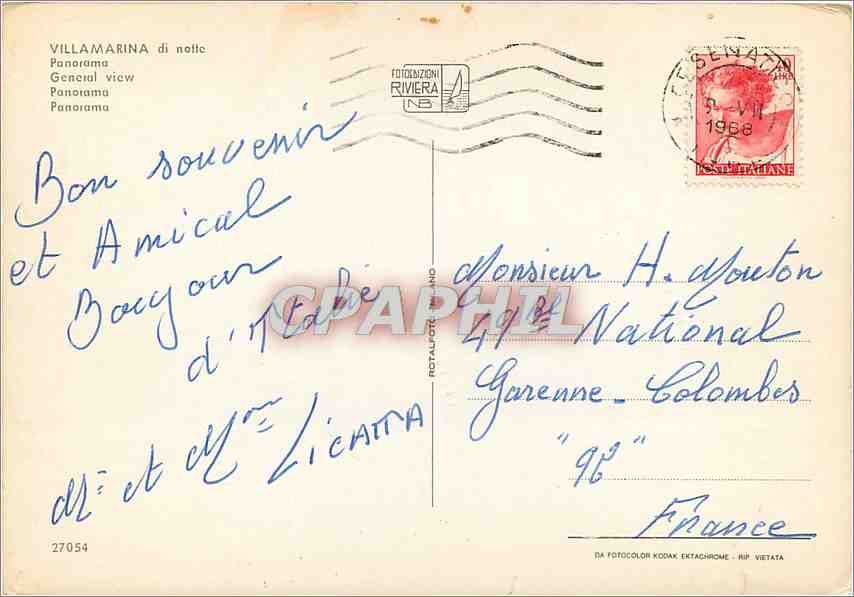 VILLAMARINA di notte
Panorama
General view
Panorama
Panorama
FOTOEDIZIONI
RIVIERA
NB
CESENATICO
VII
1968
LIRE
POSTE ITALIANE
Bon souvenir
et Amical
Bonjour
d'Italie
Mr et Mme LICATTA
CPAPHIL
ROTALFOTO MILANO
Monsieur H. Mouton
49 Bd National
Garenne-Colombes
"92"
France
27054
DA FOTOCOLOR KODAK EKTACHROME - RIP. VIETATA